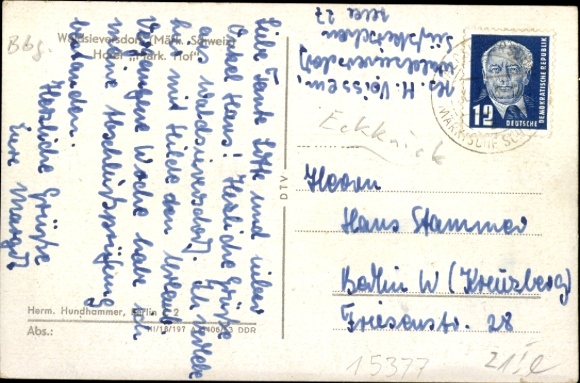 Bbg.
Waldsieversdorf (Märk. Schweiz)
Hotel „Märk. Hof"
Liebe Tante Lotte und lieber
Onkel Hans! Herzliche Grüße
aus Waldsieversdorf. Ich verlebe
hier mit Hilde den Urlaub.
Vergangene Woche habe ich
meine Abschlußprüfung
bestanden.
Herzliche Grüße
Eure Margot
Herm. Hundhammer, Berlin C 2
III/18/197 A 406/53 DDR
Abs.:
DTV
Abs. H. Voissen,
Waldsieversdorf
27
12
DEUTSCHE
DEMOKRATISCHE REPUBLIK
MÄRKISCHE SCH
Eckknick
Herrn
Hans Stammer
Berlin W (Kreuzberg)
Friesenstr. 28
15377